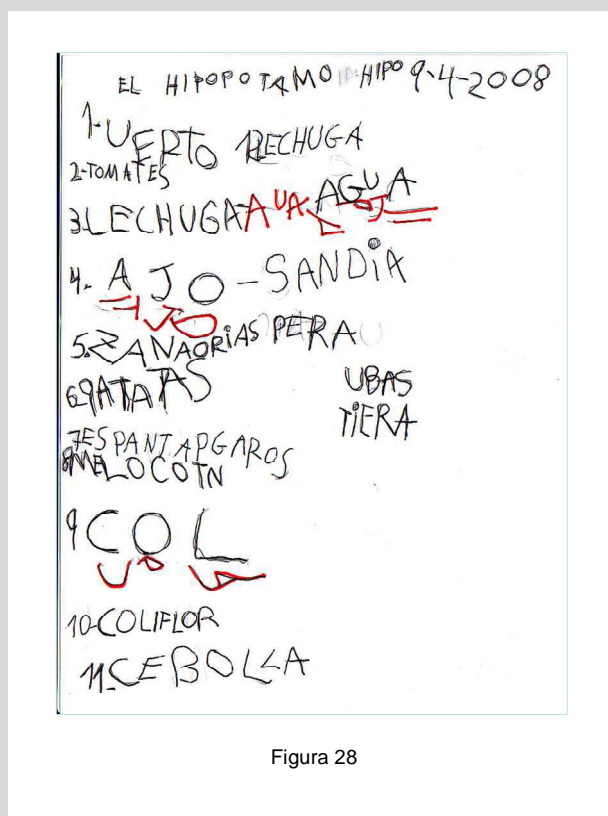 EL HIPOPOTAMO HIPO 9-4-2008
1-UERTO LECHUGA
2-TOMATES
3LECHUGA-AUA AGUA
4. AJO-SANDiA
AJO
5.ZANAORiAS PERA
6PATATAS UBAS
TiERA
7ESPANTAPGAROS
8MELOCOTN
9COL
10-COLIFLOR
11-CEBOLLA
Figura 28